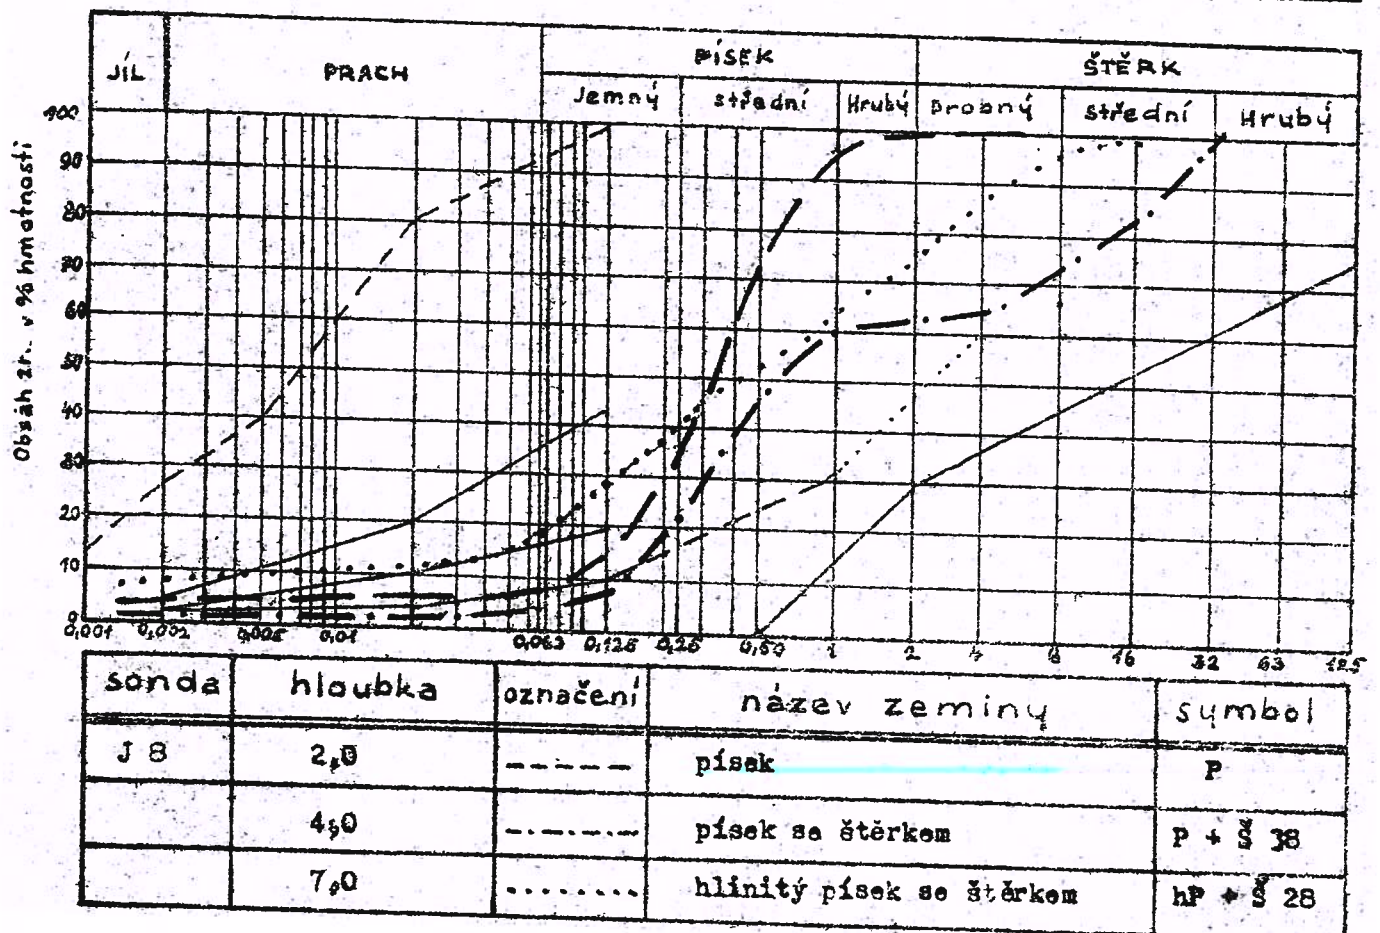 PÍSEK ŠTĚRK
JÍL PRACH
Jemný střední Hrubý Drobný střední Hrubý
Obsah zr. v % hmotnosti
100
90
80
70
60
50
40
30
20
10
0
0,001 0,002 0,005 0,01 0,063 0,125 0,25 0,50 1 2 4 8 16 32 63 125
sonda hloubka označení název zeminy symbol
J 8 2,0 písek P
4,0 písek se štěrkem p + Š 38
7,0 hlinitý písek se štěrkem hP + Š 28